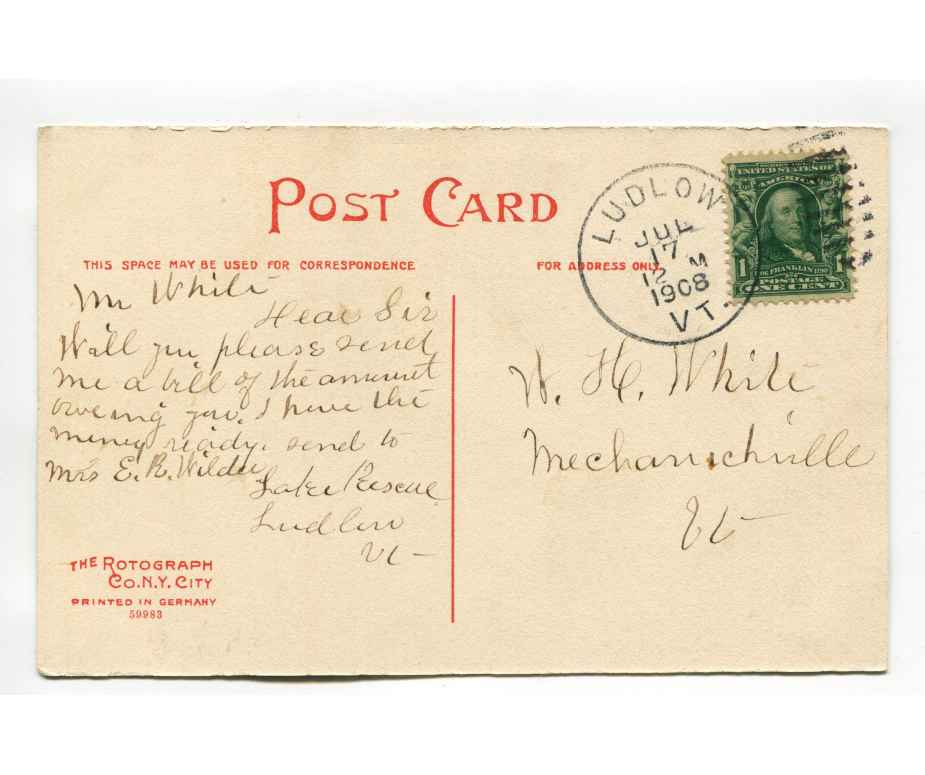 POST CARD
THIS SPACE MAY BE USED FOR CORRESPONDENCE
FOR ADDRESS ONLY.
LUDLOW
JUL
17
12 M
1908
VT.
UNITED STATES OF
AMERICA
1
FRANKLIN
POSTAGE
ONE CENT
Mr White
Dear Sir
Will you please send
me a bill of the amount
oweing you. I have the
money ready. send to
Mrs E. R. Wilder
Lake Rescue
Ludlow
Vt
W. H. White
Mechanicsville
Vt
THE ROTOGRAPH
CO. N.Y. CITY
PRINTED IN GERMANY
59983